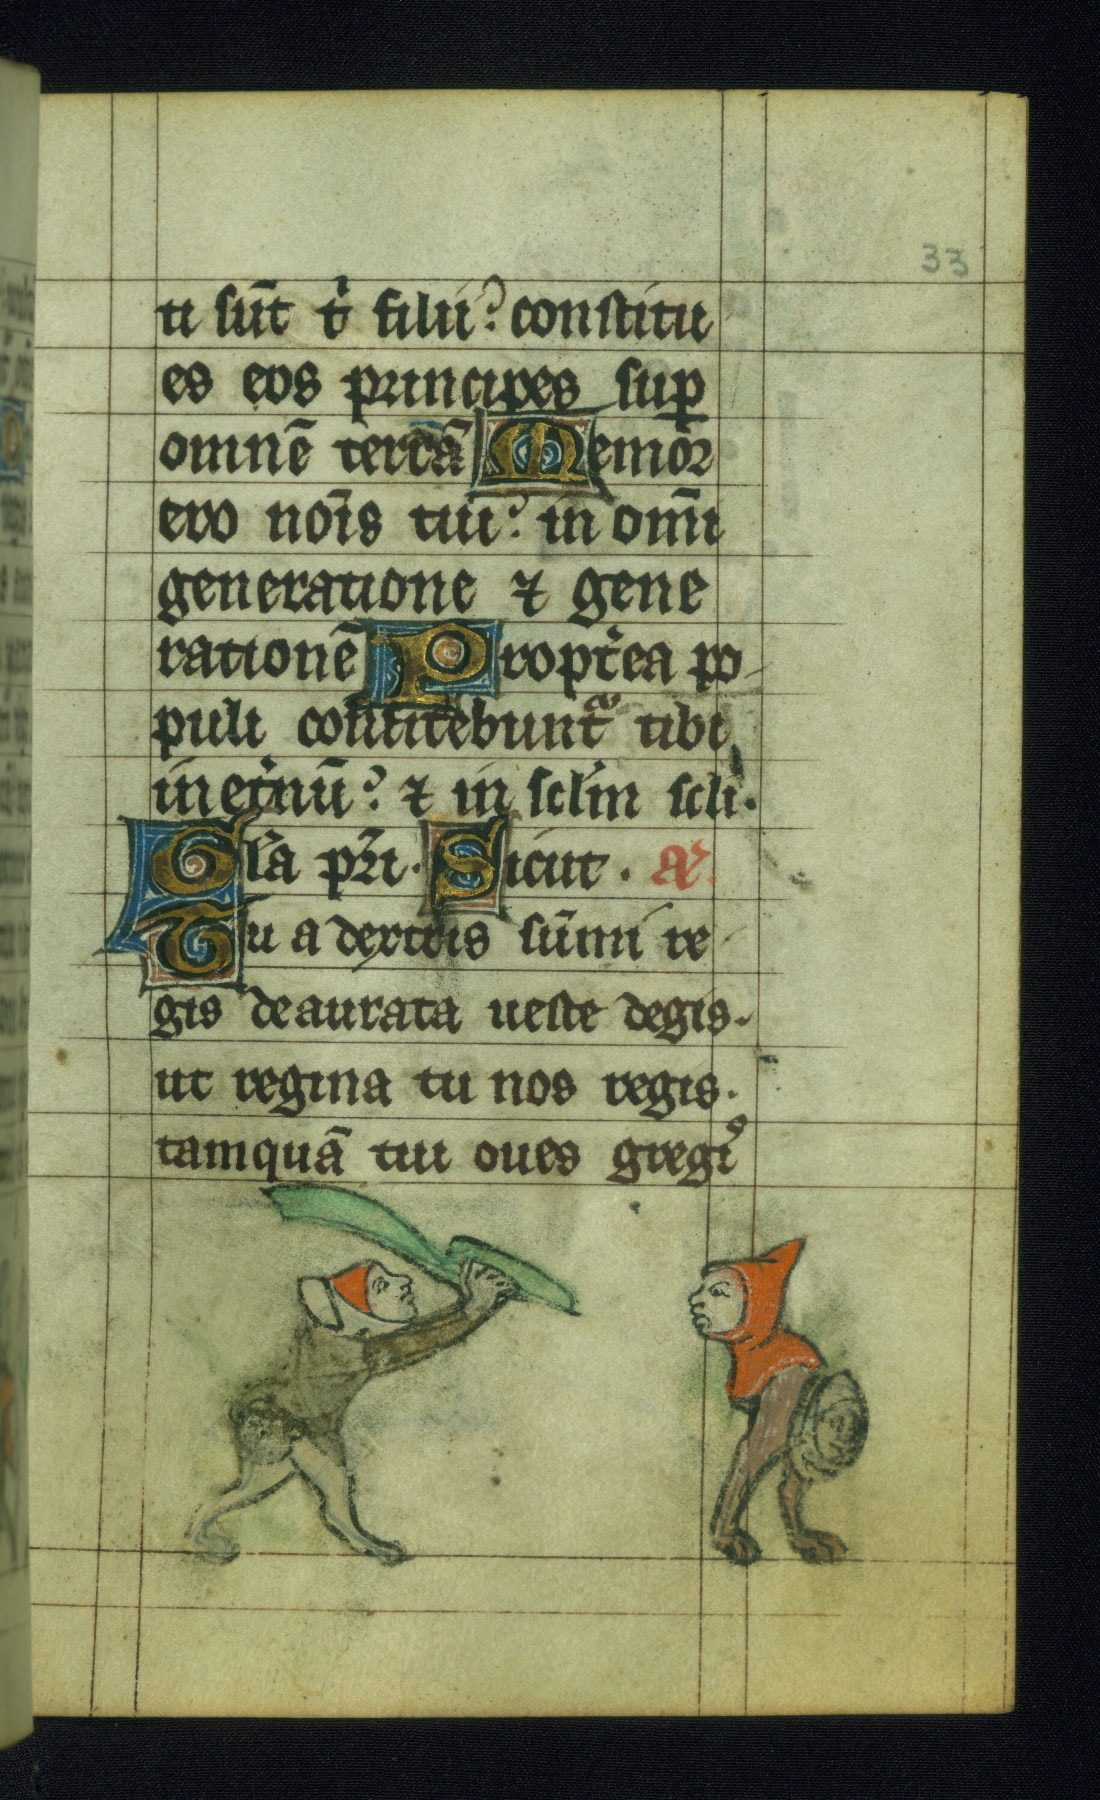 33
ti sūt t̉ filii? constitu
es eos principes sup
omnē terrā Memor
ero nōis tui? in omī
generatione ⁊ gene
rationē Propt̉ea po
puli confitebunt᷑ tibi
in et̉nū? ⁊ in sclm̄ scli.
Gl̉a pr̄i. Sicut. a᷑.
Tu a dextris sūmi re
gis deaurata ueste degis.
ut regina tu nos regis.
tamquā tui oues gregis